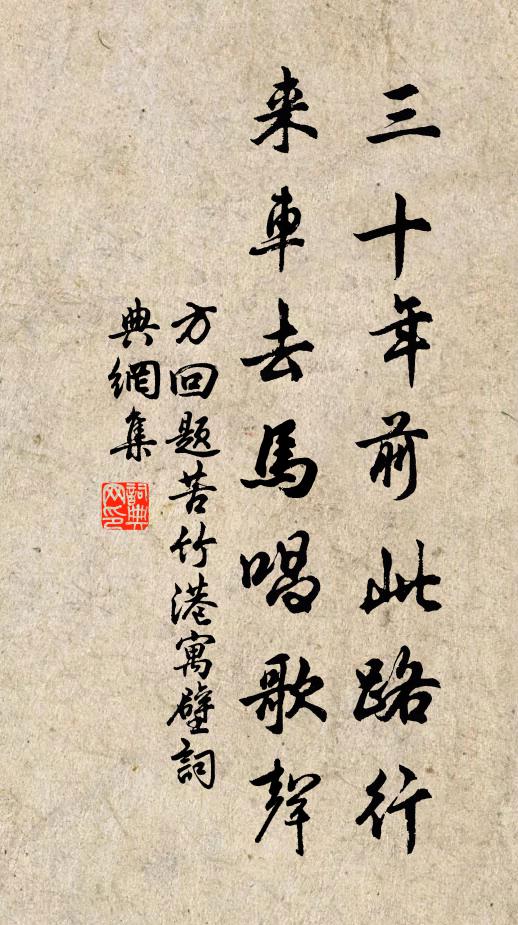 三十年前此路行
来車去馬唱歌聲
方回題苦竹港寓壁詞
典網集
詞典網印